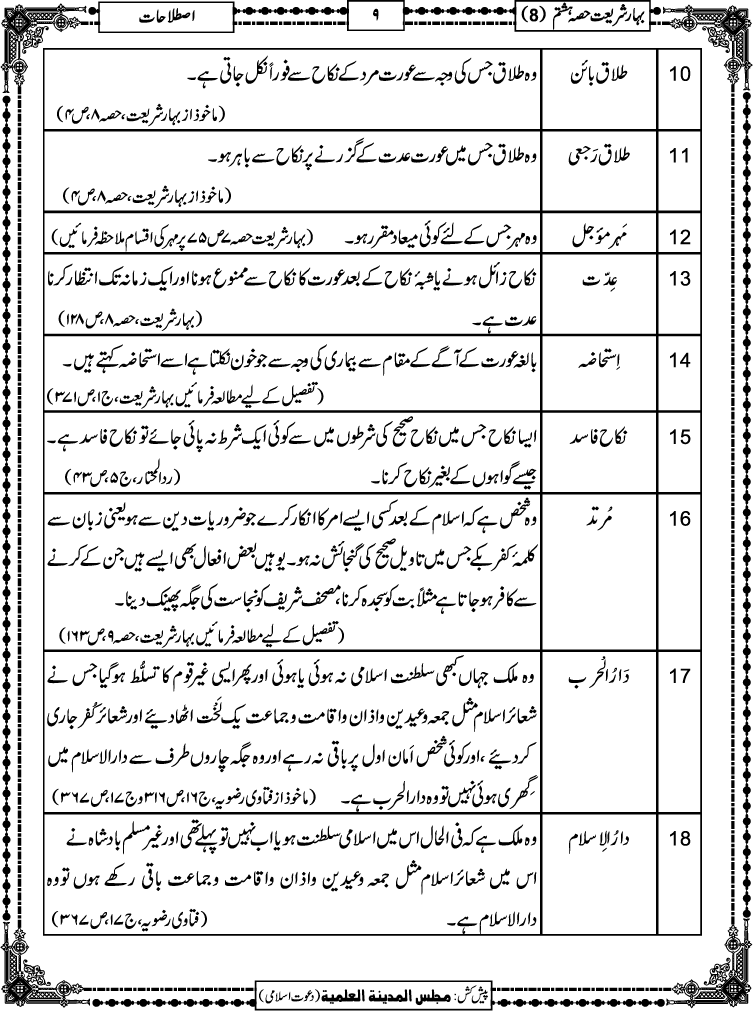 بہارِ شریعت حصہ ہشتم (8)
۹
اصطلاحات
10 طلاق بائن وہ طلاق جس کی وجہ سے عورت مرد کے نکاح سے فوراً نکل جاتی ہے۔
(ماخوذ از بہارِ شریعت، حصہ ۸، ص ۴)
11 طلاق رَجعی وہ طلاق جس میں عورت عدت کے گزرنے پر نکاح سے باہر ہو۔
(ماخوذ از بہارِ شریعت، حصہ ۸، ص ۴)
12 مَہر مؤجل وہ مہر جس کے لئے کوئی میعاد مقرر ہو۔ (بہارِ شریعت حصہ ۷ ص ۷۵ پر مہر کی اقسام ملاحظہ فرمائیں)
13 عِدّت نکاح زائل ہونے یا شبۂ نکاح کے بعد عورت کا نکاح سے ممنوع ہونا اور ایک زمانہ تک انتظار کرنا
عدت ہے۔ (بہارِ شریعت، حصہ ۸، ص ۱۲۸)
14 اِستحاضہ بالغہ عورت کے آگے کے مقام سے بیماری کی وجہ سے جو خون نکلتا ہے اسے استحاضہ کہتے ہیں۔
(تفصیل کے لیے مطالعہ فرمائیں بہارِ شریعت، ج ۱، ص ۳۷۱)
15 نکاح فاسد ایسا نکاح جس میں نکاح صحیح کی شرطوں میں سے کوئی ایک شرط نہ پائی جائے تو نکاح فاسد ہے۔
جیسے گواہوں کے بغیر نکاح کرنا۔ (ردالمحتار، ج ۵، ص ۴۳)
16 مُرتد وہ شخص ہے کہ اسلام کے بعد کسی ایسے امر کا انکار کرے جو ضروریات دین سے ہو یعنی زبان سے
کلمۂ کفر بکے جس میں تاویل صحیح کی گنجائش نہ ہو۔ یوہیں بعض افعال بھی ایسے ہیں جن کے کرنے
سے کافر ہو جاتا ہے مثلاً بت کو سجدہ کرنا، مصحف شریف کو نجاست کی جگہ پھینک دینا۔
(تفصیل کے لیے مطالعہ فرمائیں بہارِ شریعت، حصہ ۹، ص ۱۶۳)
17 دَارُالْحَرب وہ ملک جہاں کبھی سلطنت اسلامی نہ ہوئی یا ہوئی اور پھر ایسی غیر قوم کا تسلُّط ہو گیا جس نے
شعائر اسلام مثل جمعہ و عیدین و اذان و اقامت و جماعت یک لَخْت اٹھا دیئے اور شعائر کُفر جاری
کر دیئے، اور کوئی شخص اَمان اول پر باقی نہ رہے اور وہ جگہ چاروں طرف سے دارالاسلام میں
گِھری ہوئی نہیں تو وہ دارالحرب ہے۔ (ماخوذ از فتاوی رضویہ، ج ۱۶، ص ۳۱۶ و ج ۱۷، ص ۳۶۷)
18 دارُالاِسلام وہ ملک ہے کہ فی الحال اس میں اسلامی سلطنت ہو یا اب نہیں تو پہلے تھی اور غیر مسلم بادشاہ نے
اس میں شعائر اسلام مثل جمعہ و عیدین و اذان و اقامت و جماعت باقی رکھے ہوں تو وہ
دارالاسلام ہے۔ (فتاوی رضویہ، ج ۱۷، ص ۳۶۷)
پیش کش: مجلس المدینۃ العلمیۃ (دعوت اسلامی)